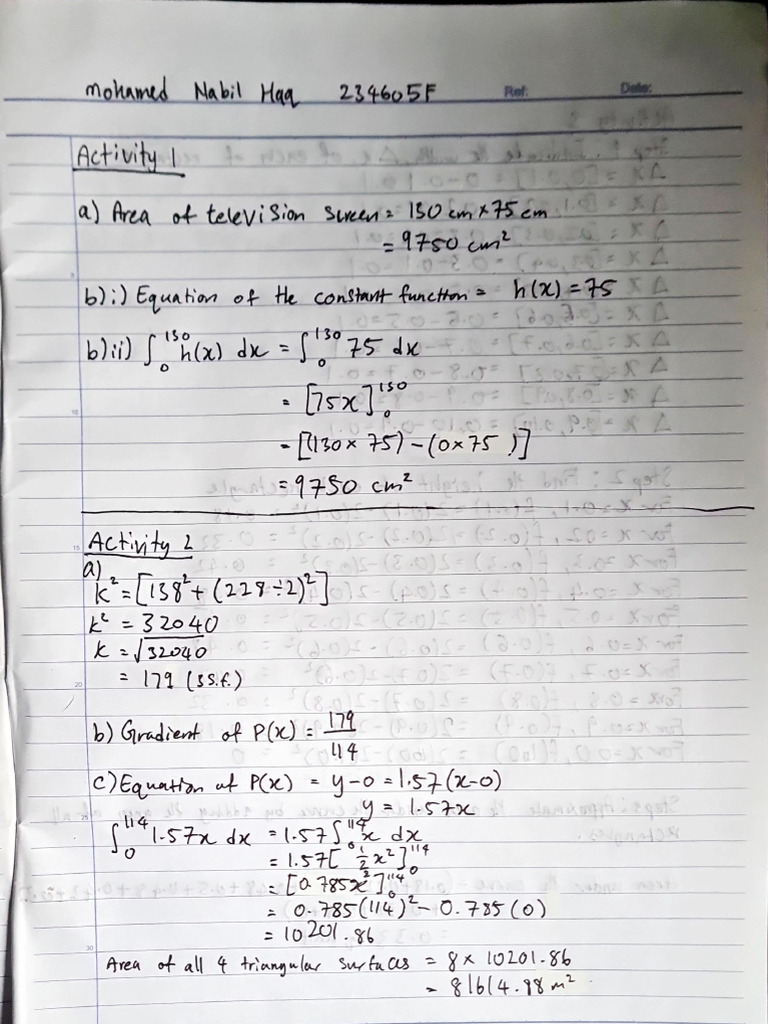 Mohamed Nabil Haq 234605F Ref: Date:
Activity 1
a) Area of television screen = 130 cm × 75 cm
= 9750 cm²
b) i) Equation of the constant function = h(x) = 75
b) ii) ∫₀¹³⁰ h(x) dx = ∫₀¹³⁰ 75 dx
= [75x]₀¹³⁰
= [(130 × 75) − (0 × 75)]
= 9750 cm²
Activity 2
a)
k² = [138² + (228 ÷ 2)²]
k² = 32040
k = √32040
= 179 (3 s.f.)
b) Gradient of P(x) = 179/114
c) Equation of P(x) = y − 0 = 1.57 (x − 0)
y = 1.57x
∫₀¹¹⁴ 1.57x dx = 1.57 ∫₀¹¹⁴ x dx
= 1.57 [½x²]₀¹¹⁴
= [0.785x²]₀¹¹⁴
= 0.785(114)² − 0.785(0)
= 10201.86
Area of all 4 triangular surfaces = 8 × 10201.86
= 81614.88 m²